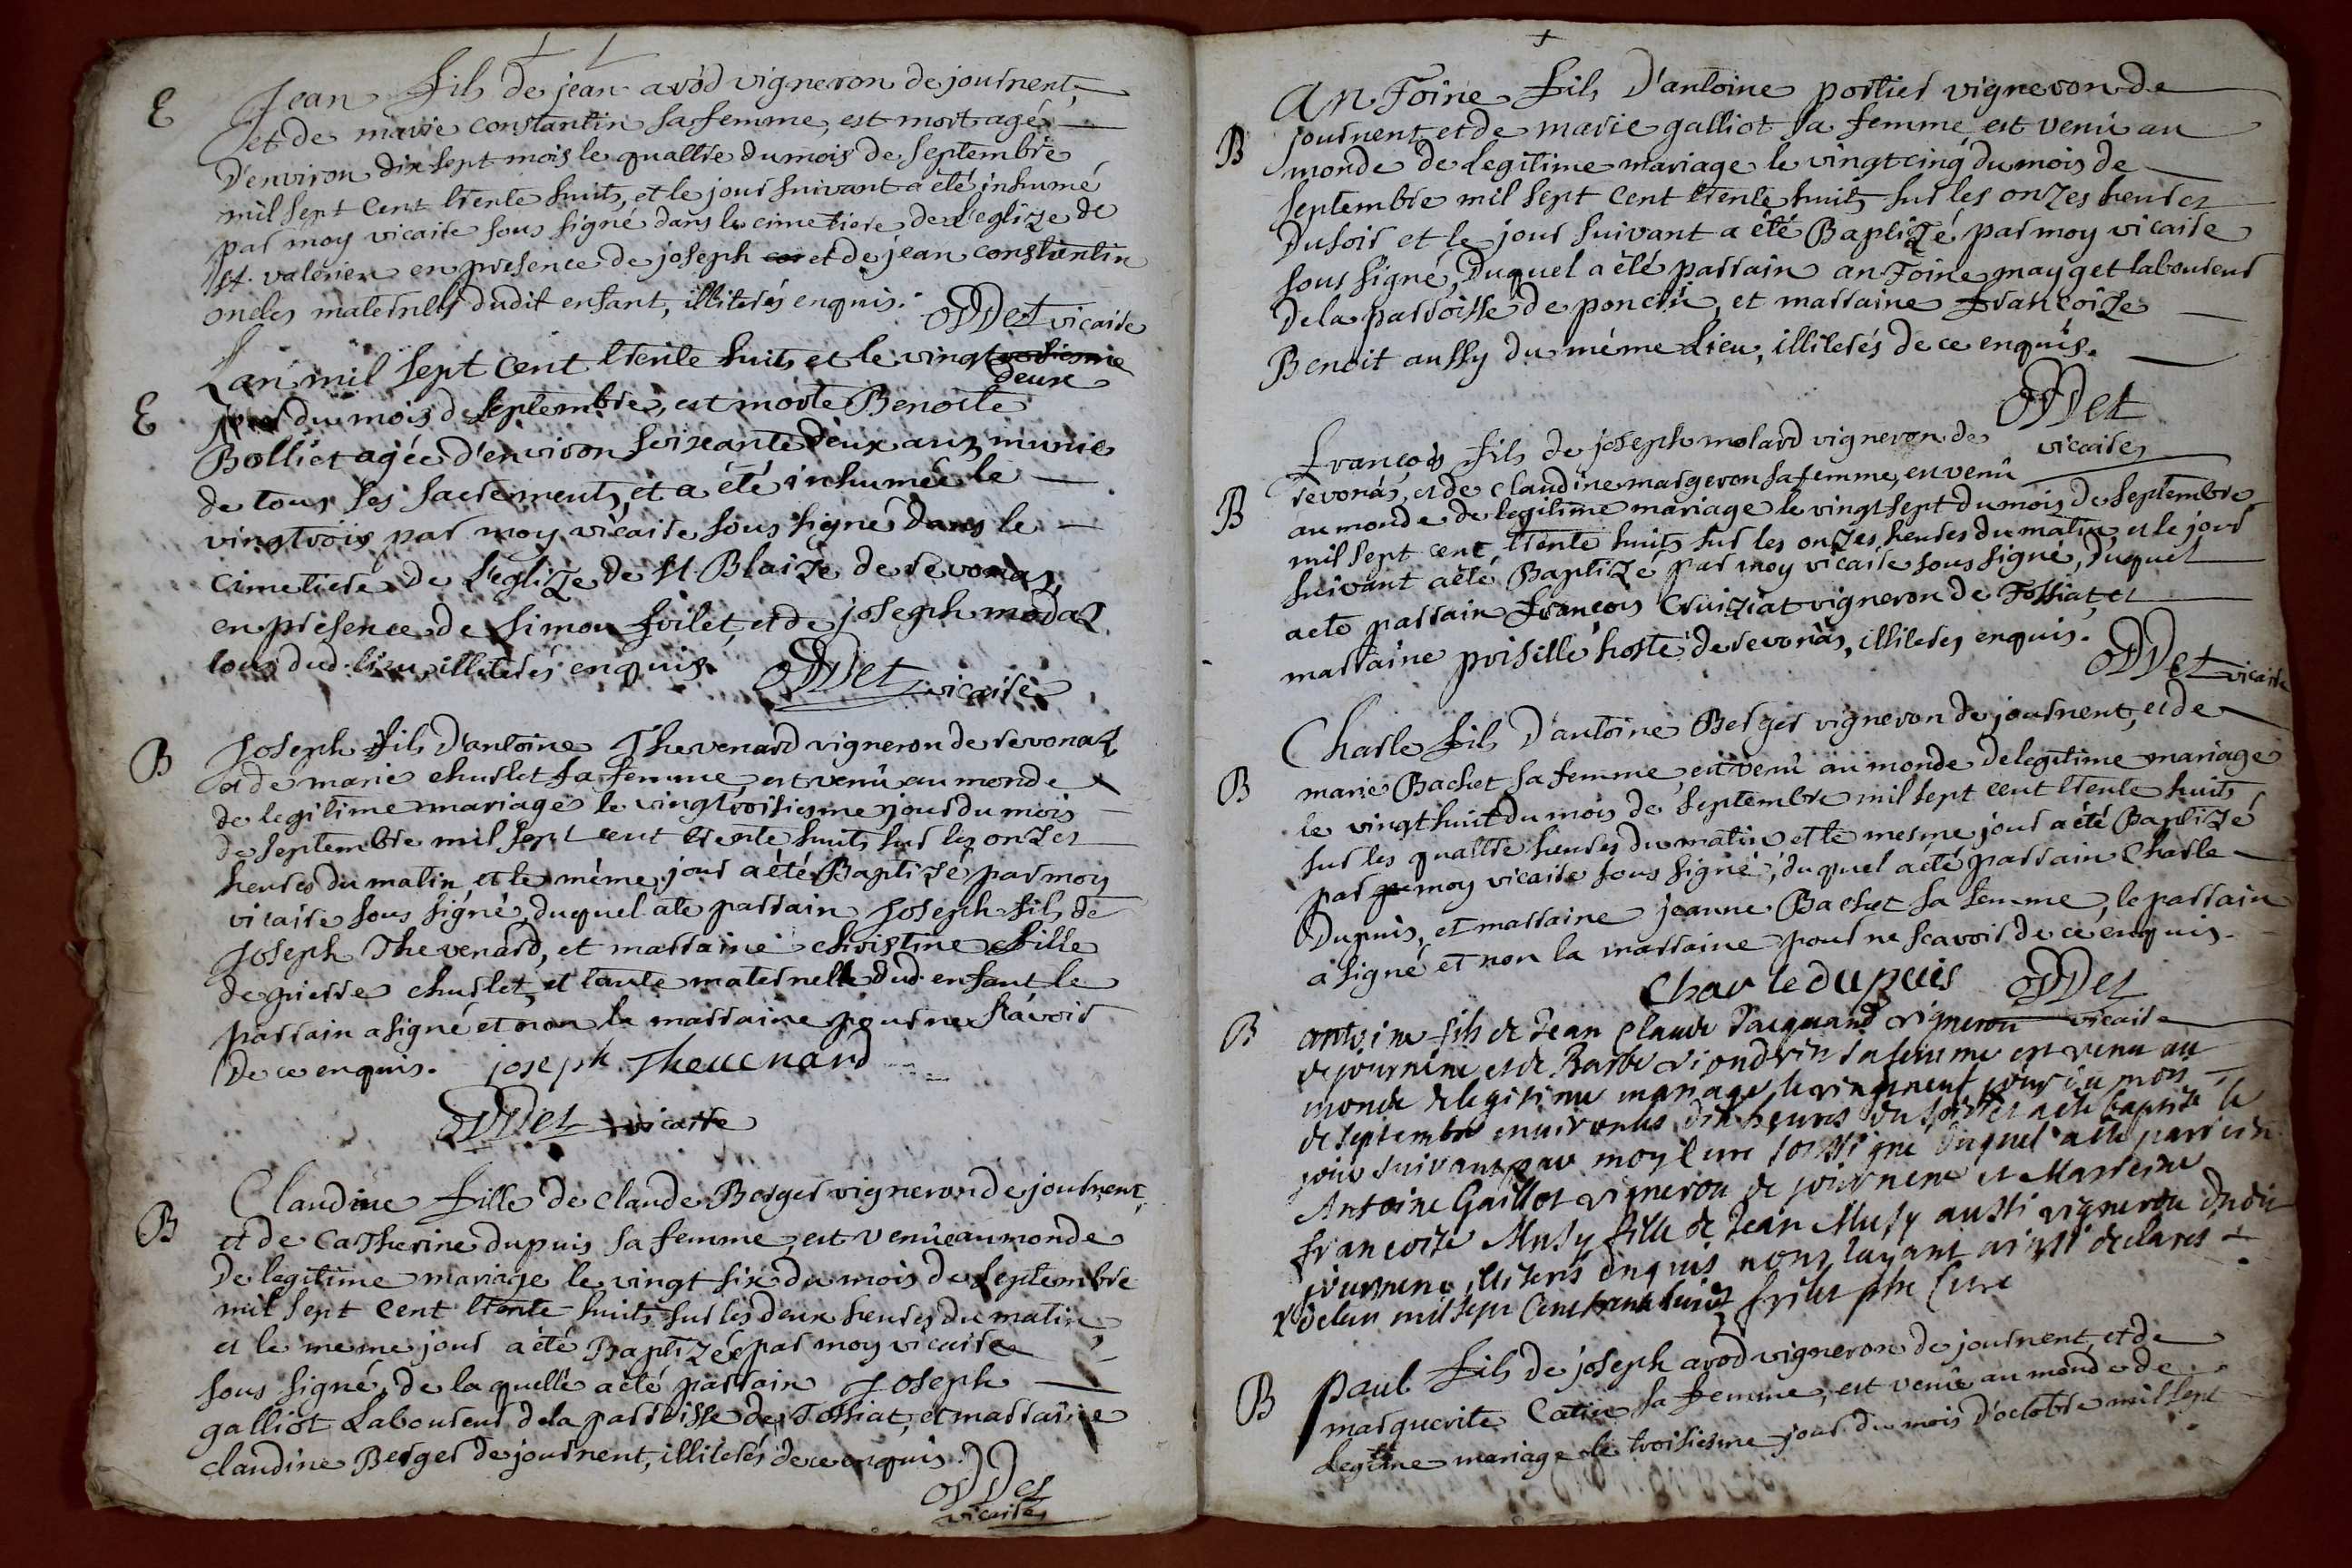 E
Jean fils de jean avod vigneron de journent,
et de marie constantin sa femme, est mort agé
d'environ dix sept mois le quattre du mois de septembre
mil sept cent trente huit, et le jour suivant a été inhumé
par moy vicaire sous signé dans le cimetiere de l'eglize de
st. valerien en presence de joseph et de jean constentin
oncles maternels dudit enfant, illiterés enquis.
Oddet vicaire
E
Lan mil sept cent trente huit et le vingt
deux
jour du mois de septembre, est morte Benoite
Bolliet agée d'environ soixante deux ans munie
de tous ses sacrements, et a été inhumée le
vingtrois par moy vicaire sous signé dans le
cimetiere de l'eglize de st Blaize de revonas,
en presence de simon foilet, et de joseph modas
tous dud. lieu, illiterés enquis.
Oddet vicaire
B
Joseph fils d'antoine Thevenard vigneron de revonas
et de marie churlet sa femme, est venû au monde
de legitime mariage le vingtroisiesme jour du mois
de septembre mil sept cent trente huit sur les onzes
heures du matin, et le même jour a été Baptizé par moy
vicaire sous signé, duquel a te parrain Joseph fils de
Joseph Thevenard, et marraine christine fille
de pierre churlet, et tante maternelle dud. enfant le
parrain a signé et non la marraine pour ne sçavoir
de ce enquis. joseph Theuenard
Oddet vicaire
B
Claudine fille de claude Berger vigneron de journent,
et de Catherine dupuis sa femme, est venûe au monde
de legitime mariage le vingt six du mois de septembre
mil sept cent trente huit, sur les deux heures du matin,
et le meme jour a été Baptizée par moy vicaire
sous signé, de laquelle a été parrain Joseph
galliot Laboureur de la parroisse de Tossiat, et marraine
claudine Berger de journent, illiterés de ce enquis.
Oddet
vicaire
B
Antoine fils d'antoine portier vigneron de
journent, et de marie galliot sa femme, est venû au
monde de legitime mariage le vingt cinq du mois de
septembre mil sept cent trente huit sur les onzes heures
du soir et le jour suivant a été Baptizé par moy vicaire
sous signé, duquel a été parrain antoine mayget laboureur
de la parroisse de poncin, et marraine françoize
Benoit aussy du même Lieu, illiterés de ce enquis.
Oddet
vicaire
B
François fils de joseph molard vigneron de
revonas, et de claudine margeron sa femme, en venû
au monde de legitime mariage le vingt sept du mois de septembre
mil sept cent trente huit sur les onzes heures du matin, et le jour
suivant a été Baptizé par moy vicaire sous signé, duquel
a eté parrain françois Cruiziat vigneron de Tossiat, et
marraine prisille hoste de revonas, illiteres enquis.
Oddet vicaire
B
Charle fils d'antoine Berger vigneron de journent, et de
marie Bachet sa femme, est venû au monde de legitime mariage
le vingt huit du mois de septembre mil sept cent trente huit
sur les quattre heures du matin et le mesme jour a été Baptizé
par moy vicaire sous signé, duquel a été parrain Charle
Dupuis, et marraine jeanne Bachet sa femme, le parrain
a signé et non la marraine pour ne scavoir de ce enquis.
Charle dupuis Oddet
vicaire
B
antoine fils de Jean Claude Jacquand vigneron
de journent et de Barbe sa femme est venu au
monde de legitime mariage le vingtneuf jour du mois
de septembre environ les dix heures du soir et a ete baptisé le
jour suivant par moy Curé soussigné duquel a ete parrein
Antoine Gaillot vigneron de journent et Marreine
françoise Musy fille de Jean Musy aussi vigneron dudit
journent illiterés enquis nous layant ainsi declarés
x de lan mil sept cent trente huit ptre Curé
B
Paul fils de joseph avod vigneron de journent, et de
marguerite Catin sa femme, est venû au monde de
Legitime mariage le troisiesme jour du mois d'octobre mil sept